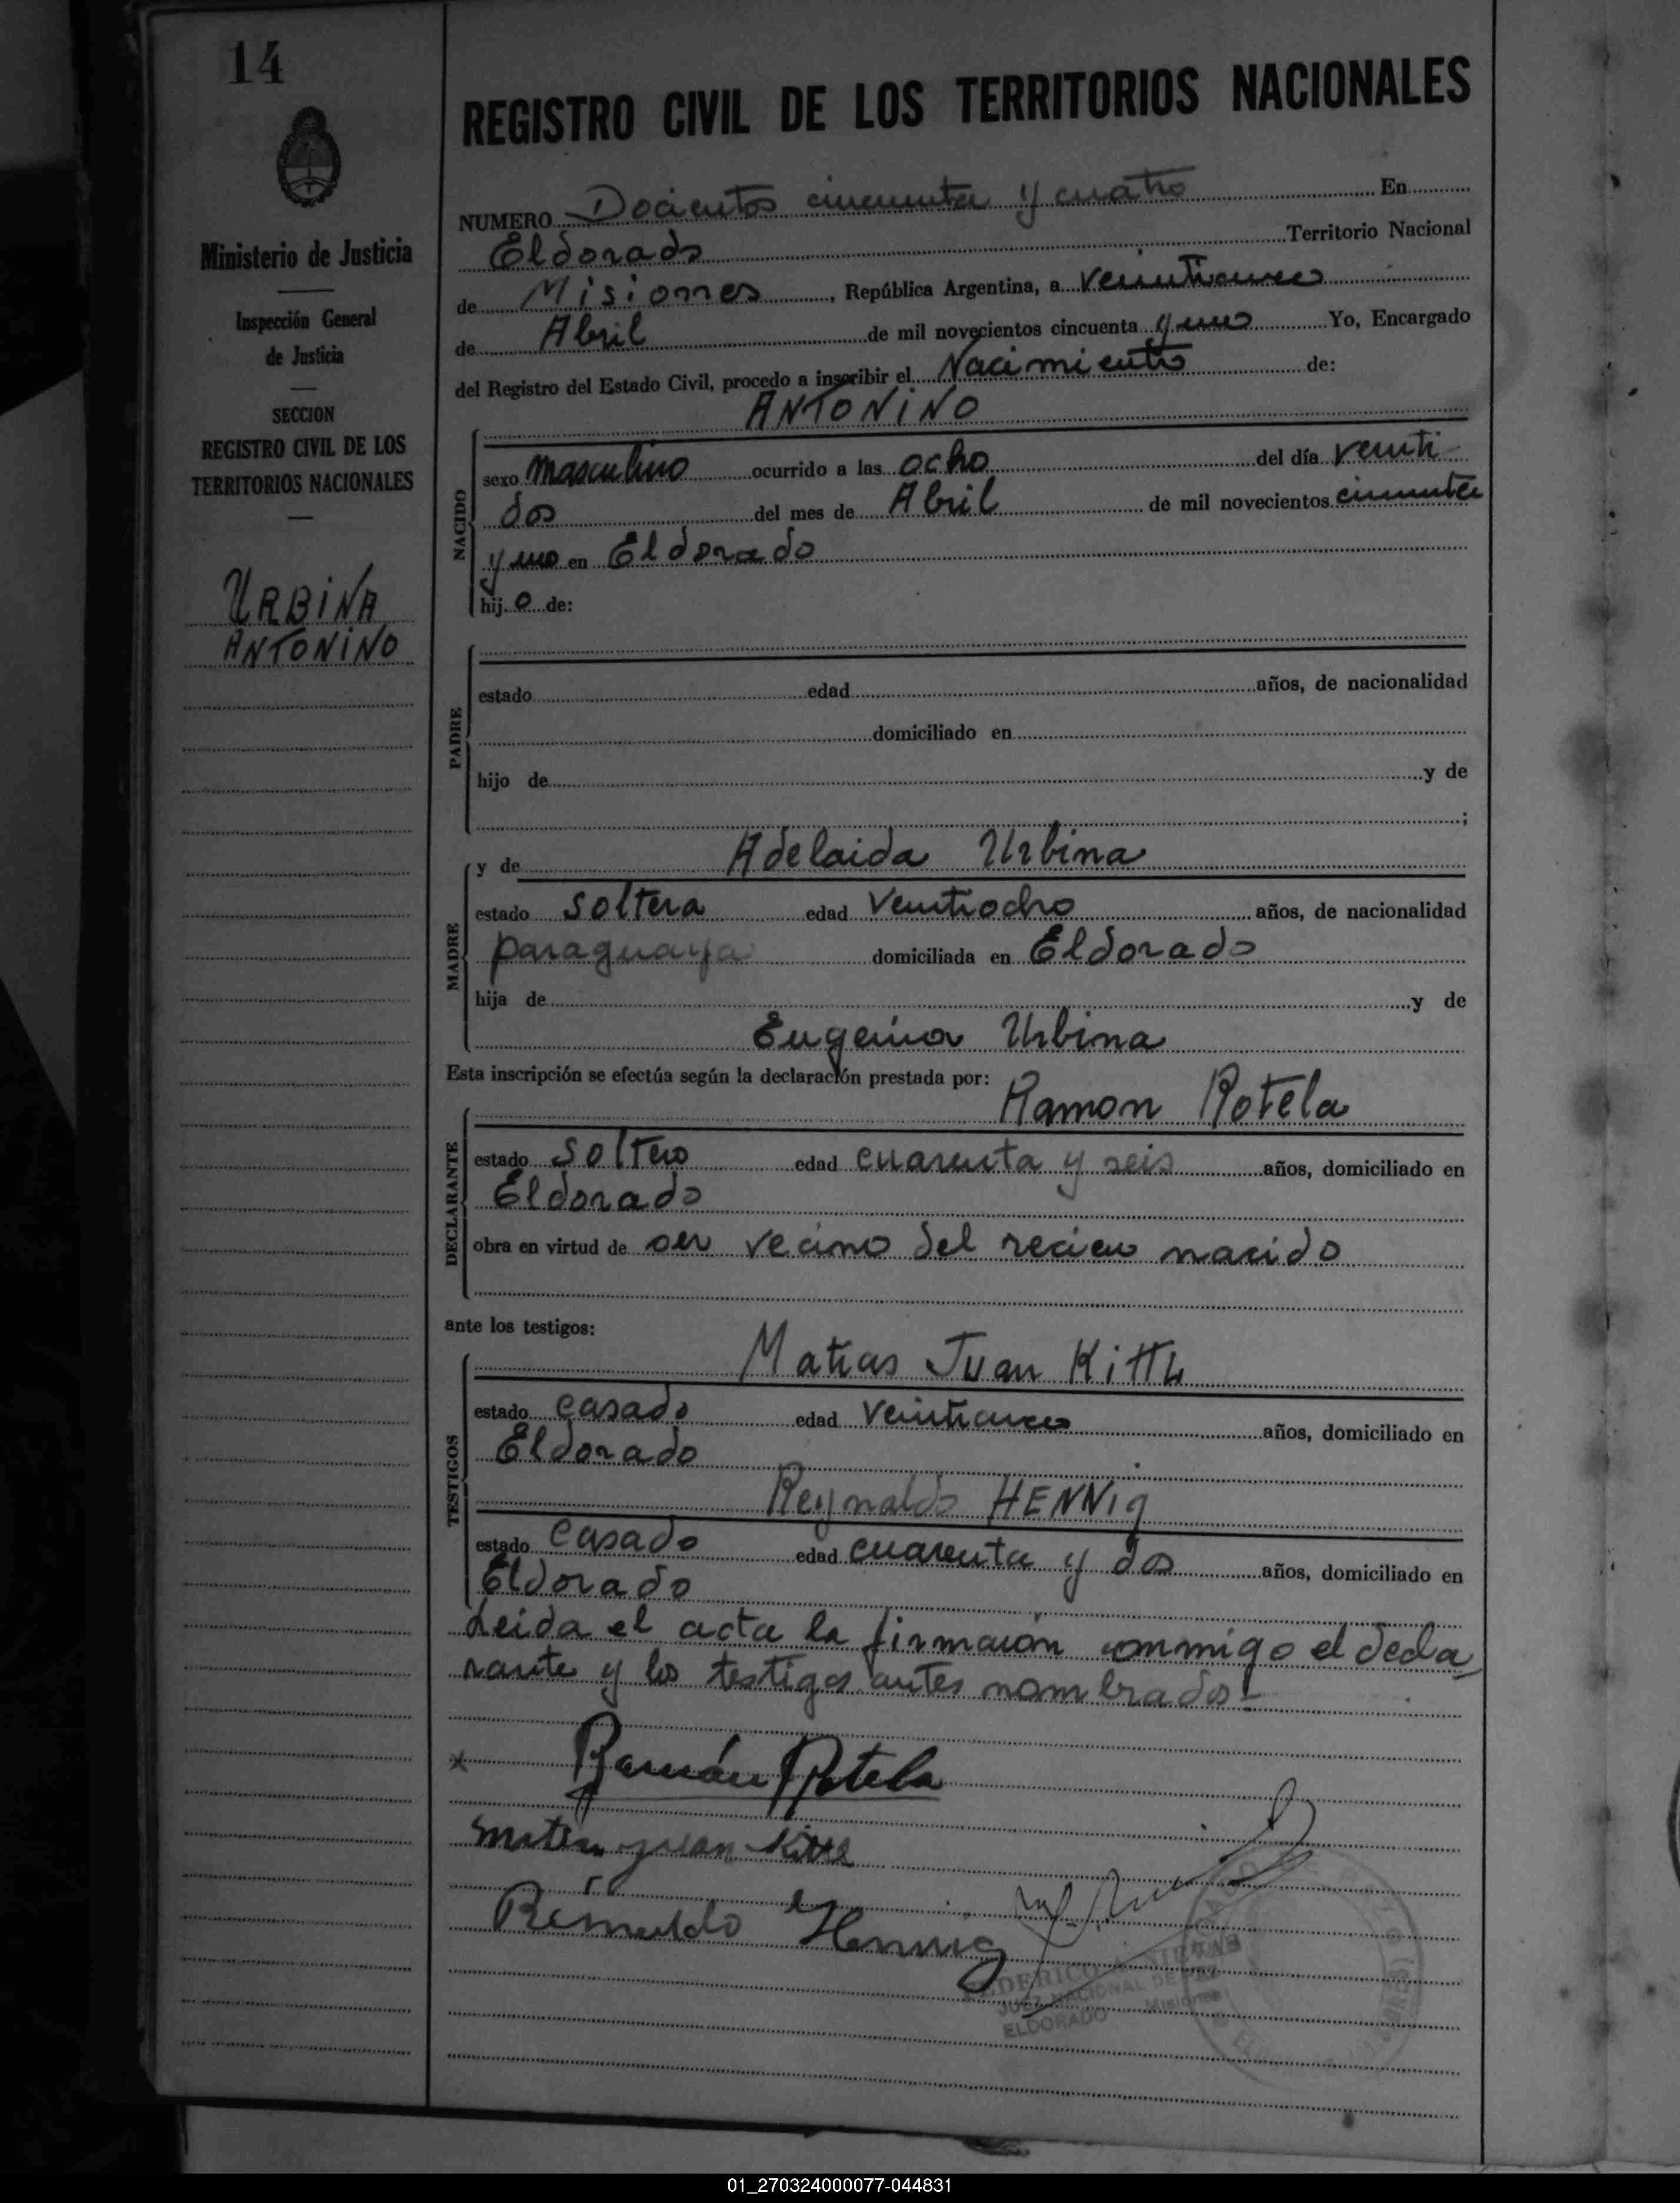 14
Ministerio de Justicia
Inspección General
de Justicia
SECCION
REGISTRO CIVIL DE LOS
TERRITORIOS NACIONALES
URBINA
ANTONINO
REGISTRO CIVIL DE LOS TERRITORIOS NACIONALES
NUMERO Docientos cincuenta y cuatro En
Eldorado Territorio Nacional
de Misiones, República Argentina, a veinticinco
de Abril de mil novecientos cincuenta y uno Yo, Encargado
del Registro del Estado Civil, procedo a inscribir el Nacimiento de:
ANTONINO
NACIDO
sexo masculino ocurrido a las ocho del día veinti
dos del mes de Abril de mil novecientos cincuenta
y uno en Eldorado
hij o de:
PADRE
estado edad años, de nacionalidad
domiciliado en
hijo de y de
;
MADRE
y de Adelaida Urbina
estado soltera edad veintiocho años, de nacionalidad
paraguaya domiciliada en Eldorado
hija de y de
Eugenia Urbina
Esta inscripción se efectúa según la declaración prestada por:
DECLARANTE
Ramon Rotela
estado soltero edad cuarenta y seis años, domiciliado en
Eldorado
obra en virtud de ser vecino del recien nacido
ante los testigos:
TESTIGOS
Matias Juan Kittl
estado casado edad veinticinco años, domiciliado en
Eldorado
Reynaldo HENNig
estado casado edad cuarenta y dos años, domiciliado en
Eldorado
Leida el acta la firmaron conmigo el decla
rante y los testigos antes nombrados.-
x Ramón Rotela
Juan Kittl
Reinaldo Hennig
FEDERICO
JUEZ NACIONAL DE PAZ
ELDORADO Misiones
01_270324000077-044831